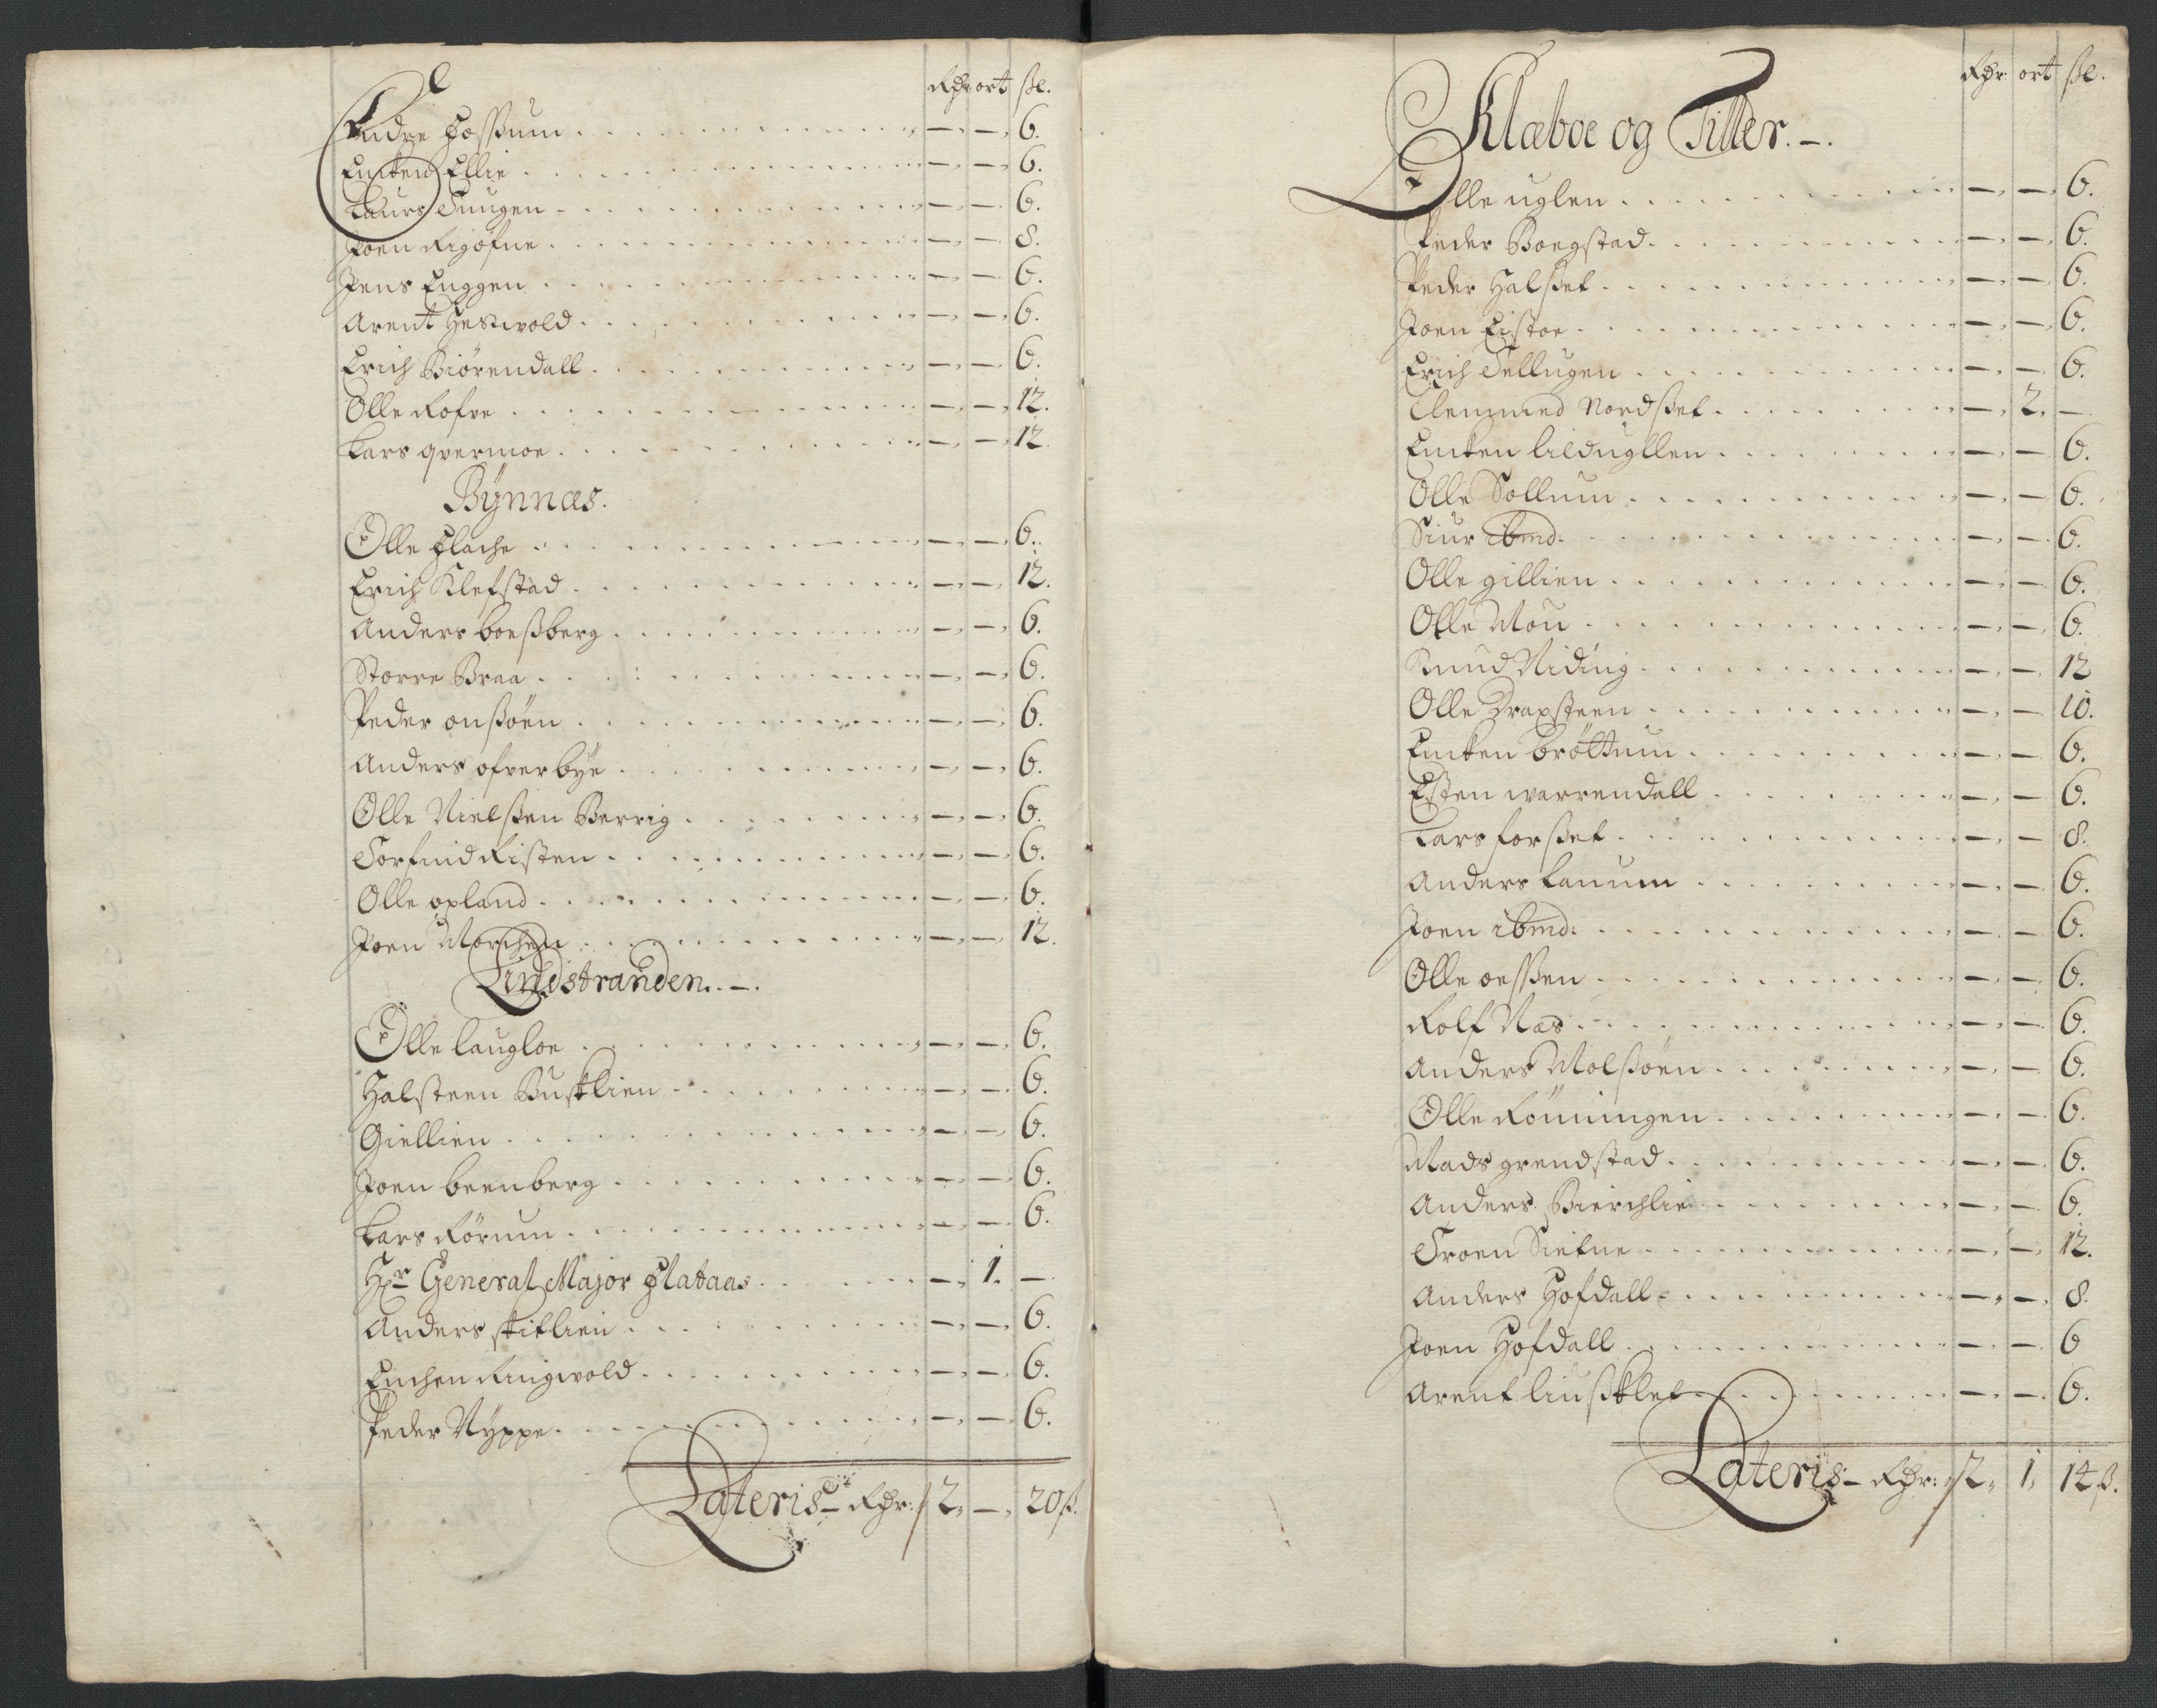 Rdr ort ßl.
Endre Foßum — — 6.
Encken Ellie — — 6.
Laurs Tungen — — 6.
Joen Rigofne — — 8.
Jens Enggen — — 6.
Arent Hestwold — — 6.
Erich Biörendall — — 6.
Olle Rofve — — 12.
Lars qvermoe — — 12.
Bÿnnæs.
Olle Flache — — 6.
Erich Klefstad — — 12.
Anders boeßberg — — 6.
Storre Braa — — 6.
Peder onßöen — — 6.
Anders ofverbÿe — — 6.
Olle Nielßen Berrig — — 6.
Torfind Risten — — 6.
Olle opland — — 6.
Joen Morchen — — 12.
Lindstranden. —.
Olle laugloe — — 6.
Halsteen Busklien — — 6.
Giellien — — 6.
Joen beenberg — — 6.
Lars Rörum — — 6.
Hr General Major Flataas — 1. —
Anders skitlien — — 6.
Enchen Ringwold — — 6.
Peder Nÿppe — — 6.
Lateris Rdr: 2. — 20 ß.
Rdr ort ßl.
Klæboe og Tiller. —.
Olle uglen — — 6.
Peder Borgstad — — 6.
Peder Halßet — — 6.
Joen Eistoe — — 6.
Erich Tellugen — — 6.
Clemmed Nordßet — 2. —
Encken lildugllen — — 6.
Olle Sollum — — 6.
Siur ibmd: — — 6.
Olle gillien — — 6.
Olle Mou — — 6.
Knud Niding — — 12
Olle Draxsteen — — 10.
Encken bröttum — — 6.
Esten warrendall — — 6.
Lars forßet — — 8.
Anders lanum — — 6.
Joen ibmd: — — 6.
Olle oeßen — — 6.
Rolf Næs — — 6.
Anders Molßöen — — 6.
Olle Rönningen — — 6.
Mads grendstad — — 6.
Anders Bierchlie — — 6.
Troen Sietne — — 12.
Anders Hofdall — — 8.
Joen Hofdall — — 6
Arent liußklet — — 6.
Lateris — Rdr: 2. 1. 14 ß.